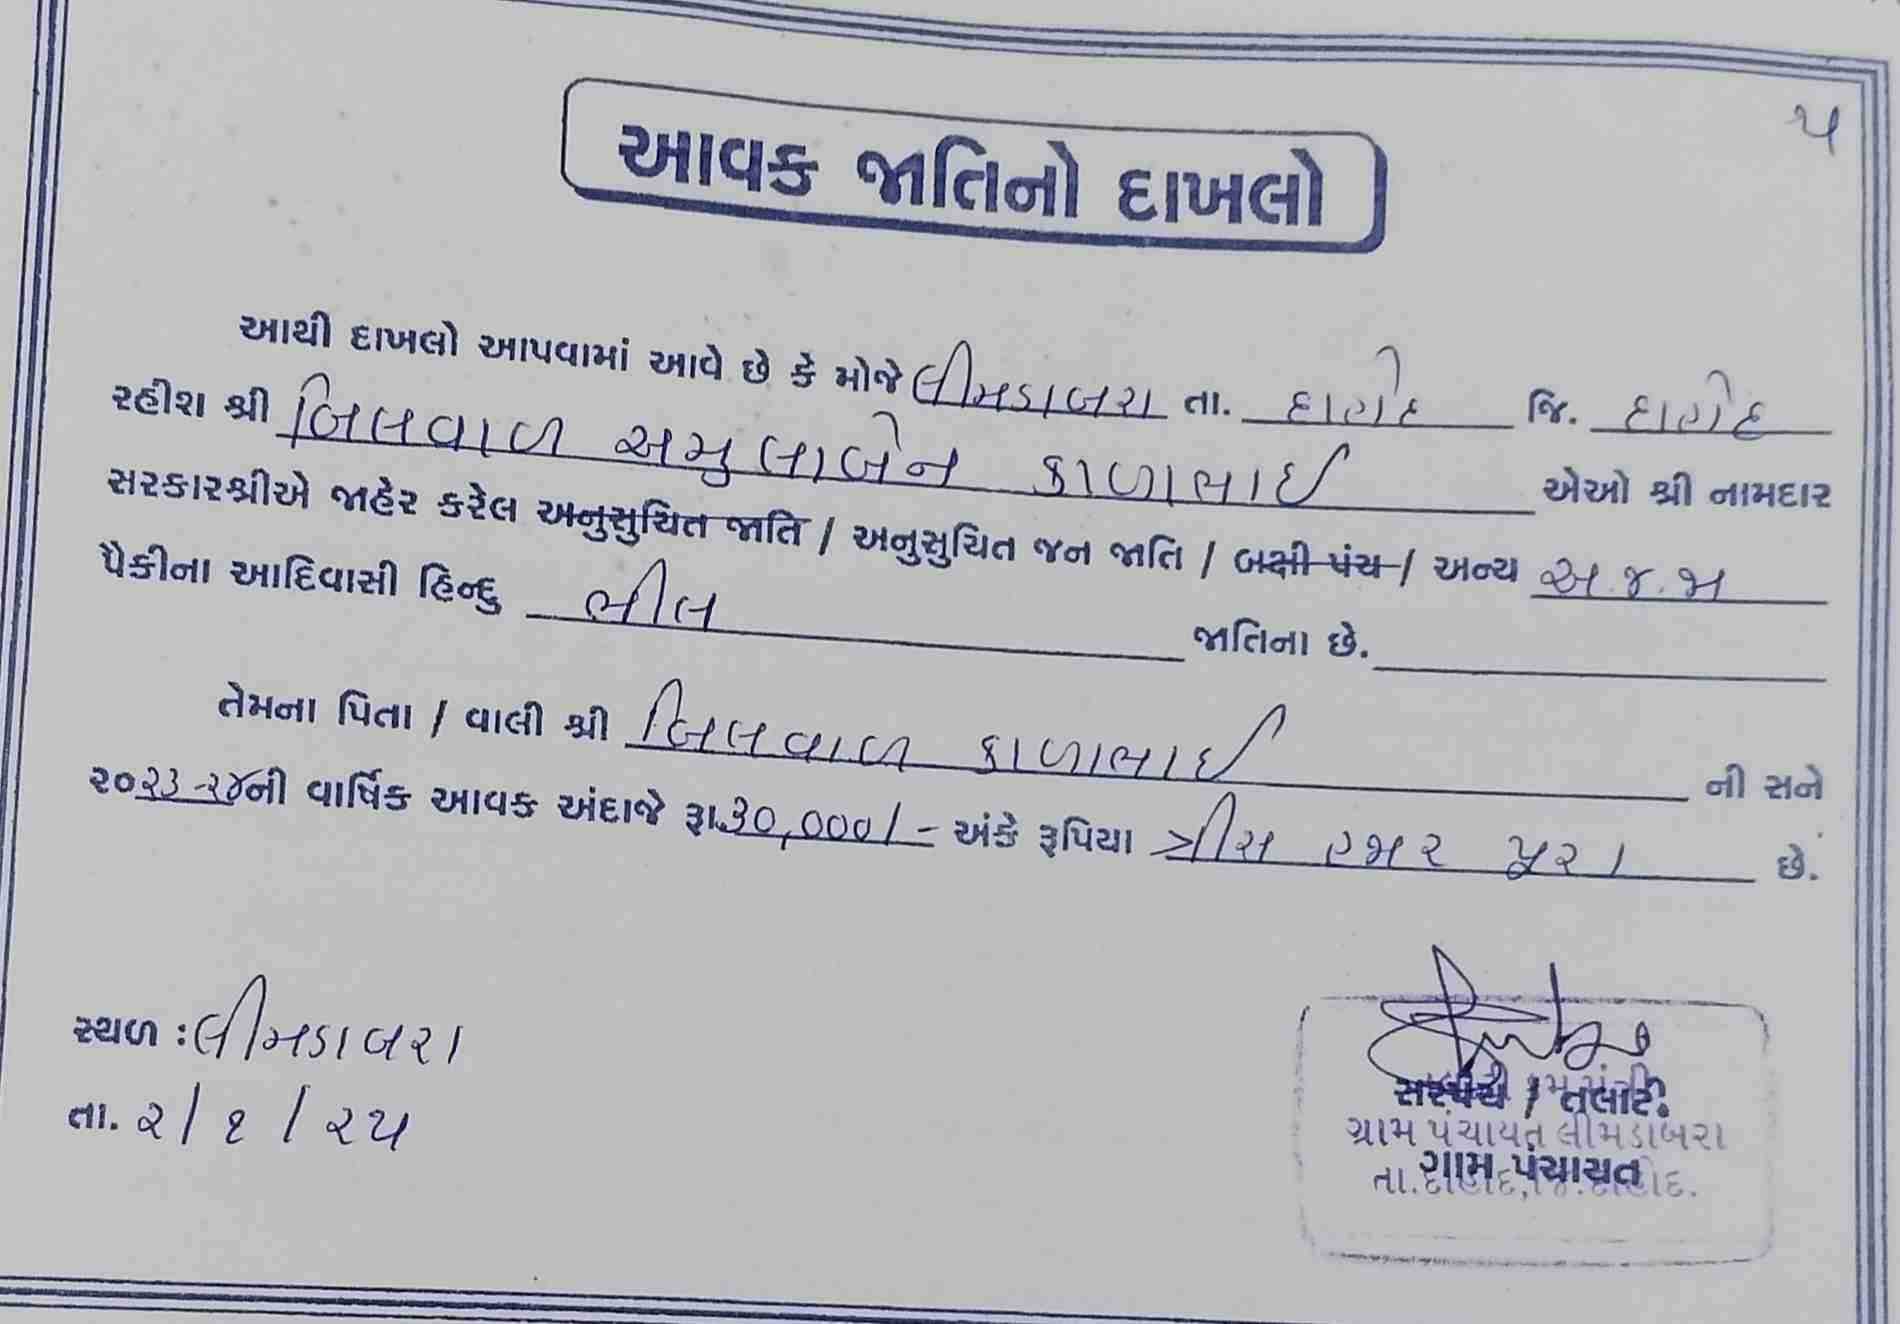 ૫
આવક જાતિનો દાખલો
આથી દાખલો આપવામાં આવે છે કે મોજે લીમડાબરા તા. દાહોદ જિ. દાહોદ
રહીશ શ્રી બિલવાળ અમુલાબેન કાળાભાઈ એઓ શ્રી નામદાર
સરકારશ્રીએ જાહેર કરેલ અનુસુચિત જાતિ / અનુસુચિત જન જાતિ / બક્ષી પંચ / અન્ય અ.જ.જા
પૈકીના આદિવાસી હિન્દુ ભીલ જાતિના છે.
તેમના પિતા / વાલી શ્રી બિલવાળ કાળાભાઈ ની સને
૨૦૨૩-૨૪ની વાર્ષિક આવક અંદાજે રૂા.૩૦,૦૦૦/- અંકે રૂપિયા ત્રીસ હજાર પુરા છે.
સ્થળ : લીમડાબરા
તા. ૨/૧/૨૫
સરપંચ / તલાટી
ગ્રામ પંચાયત લીમડાબરા
ગ્રામ પંચાયત
તા.દાહોદ,જિ.દાહોદ.